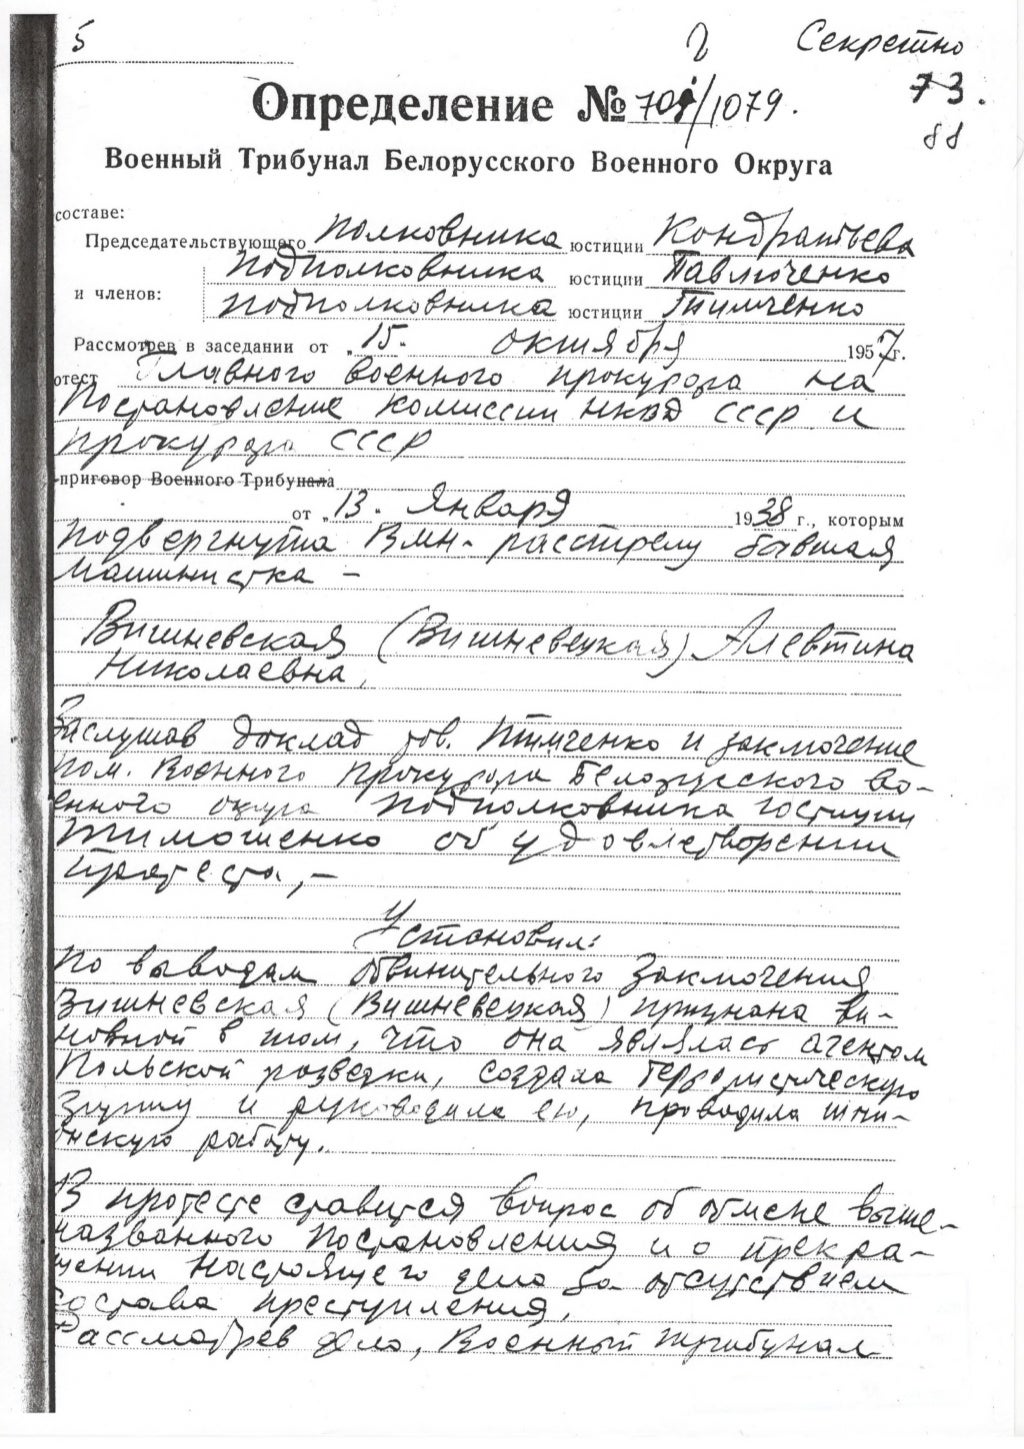 5
Секретно
73.
88
Определение № 701/1079.
Военный Трибунал Белорусского Военного Округа
составе:
Председательствующего Полковника юстиции Кондратьева
и членов: подполковника юстиции Павлюченко
подполковника юстиции Птимченко
Рассмотрев в заседании от „15. октября 1957 г.
отест Главного военного прокурора на
Постановление комиссии НКВД СССР и
прокурора СССР
приговор Военного Трибунала
от „13. января 1938 г., которым
подвергнута ВМН-расстрелу бывшая
машинистка –
Вишневская (Вишневецкая) Алевтина
Николаевна,
Заслушав доклад тов. Птимченко и заключение
пом. Военного прокурора Белорусского во-
енного округа подполковника юстиции
Тимошенко об удовлетворении
протеста,–
Установил:
По выводам обвинительного заключения
Вишневская (Вишневецкая) признана ви-
новной в том, что она являлась агентом
Польской разведки, создала террористическую
группу и руководила ею, проводила шпи-
онскую работу.
В протесте ставится вопрос об отмене выше-
названного постановления и о прекра-
щении настоящего дела за отсутствием
состава преступления.
Рассмотрев дело, Военный трибунал